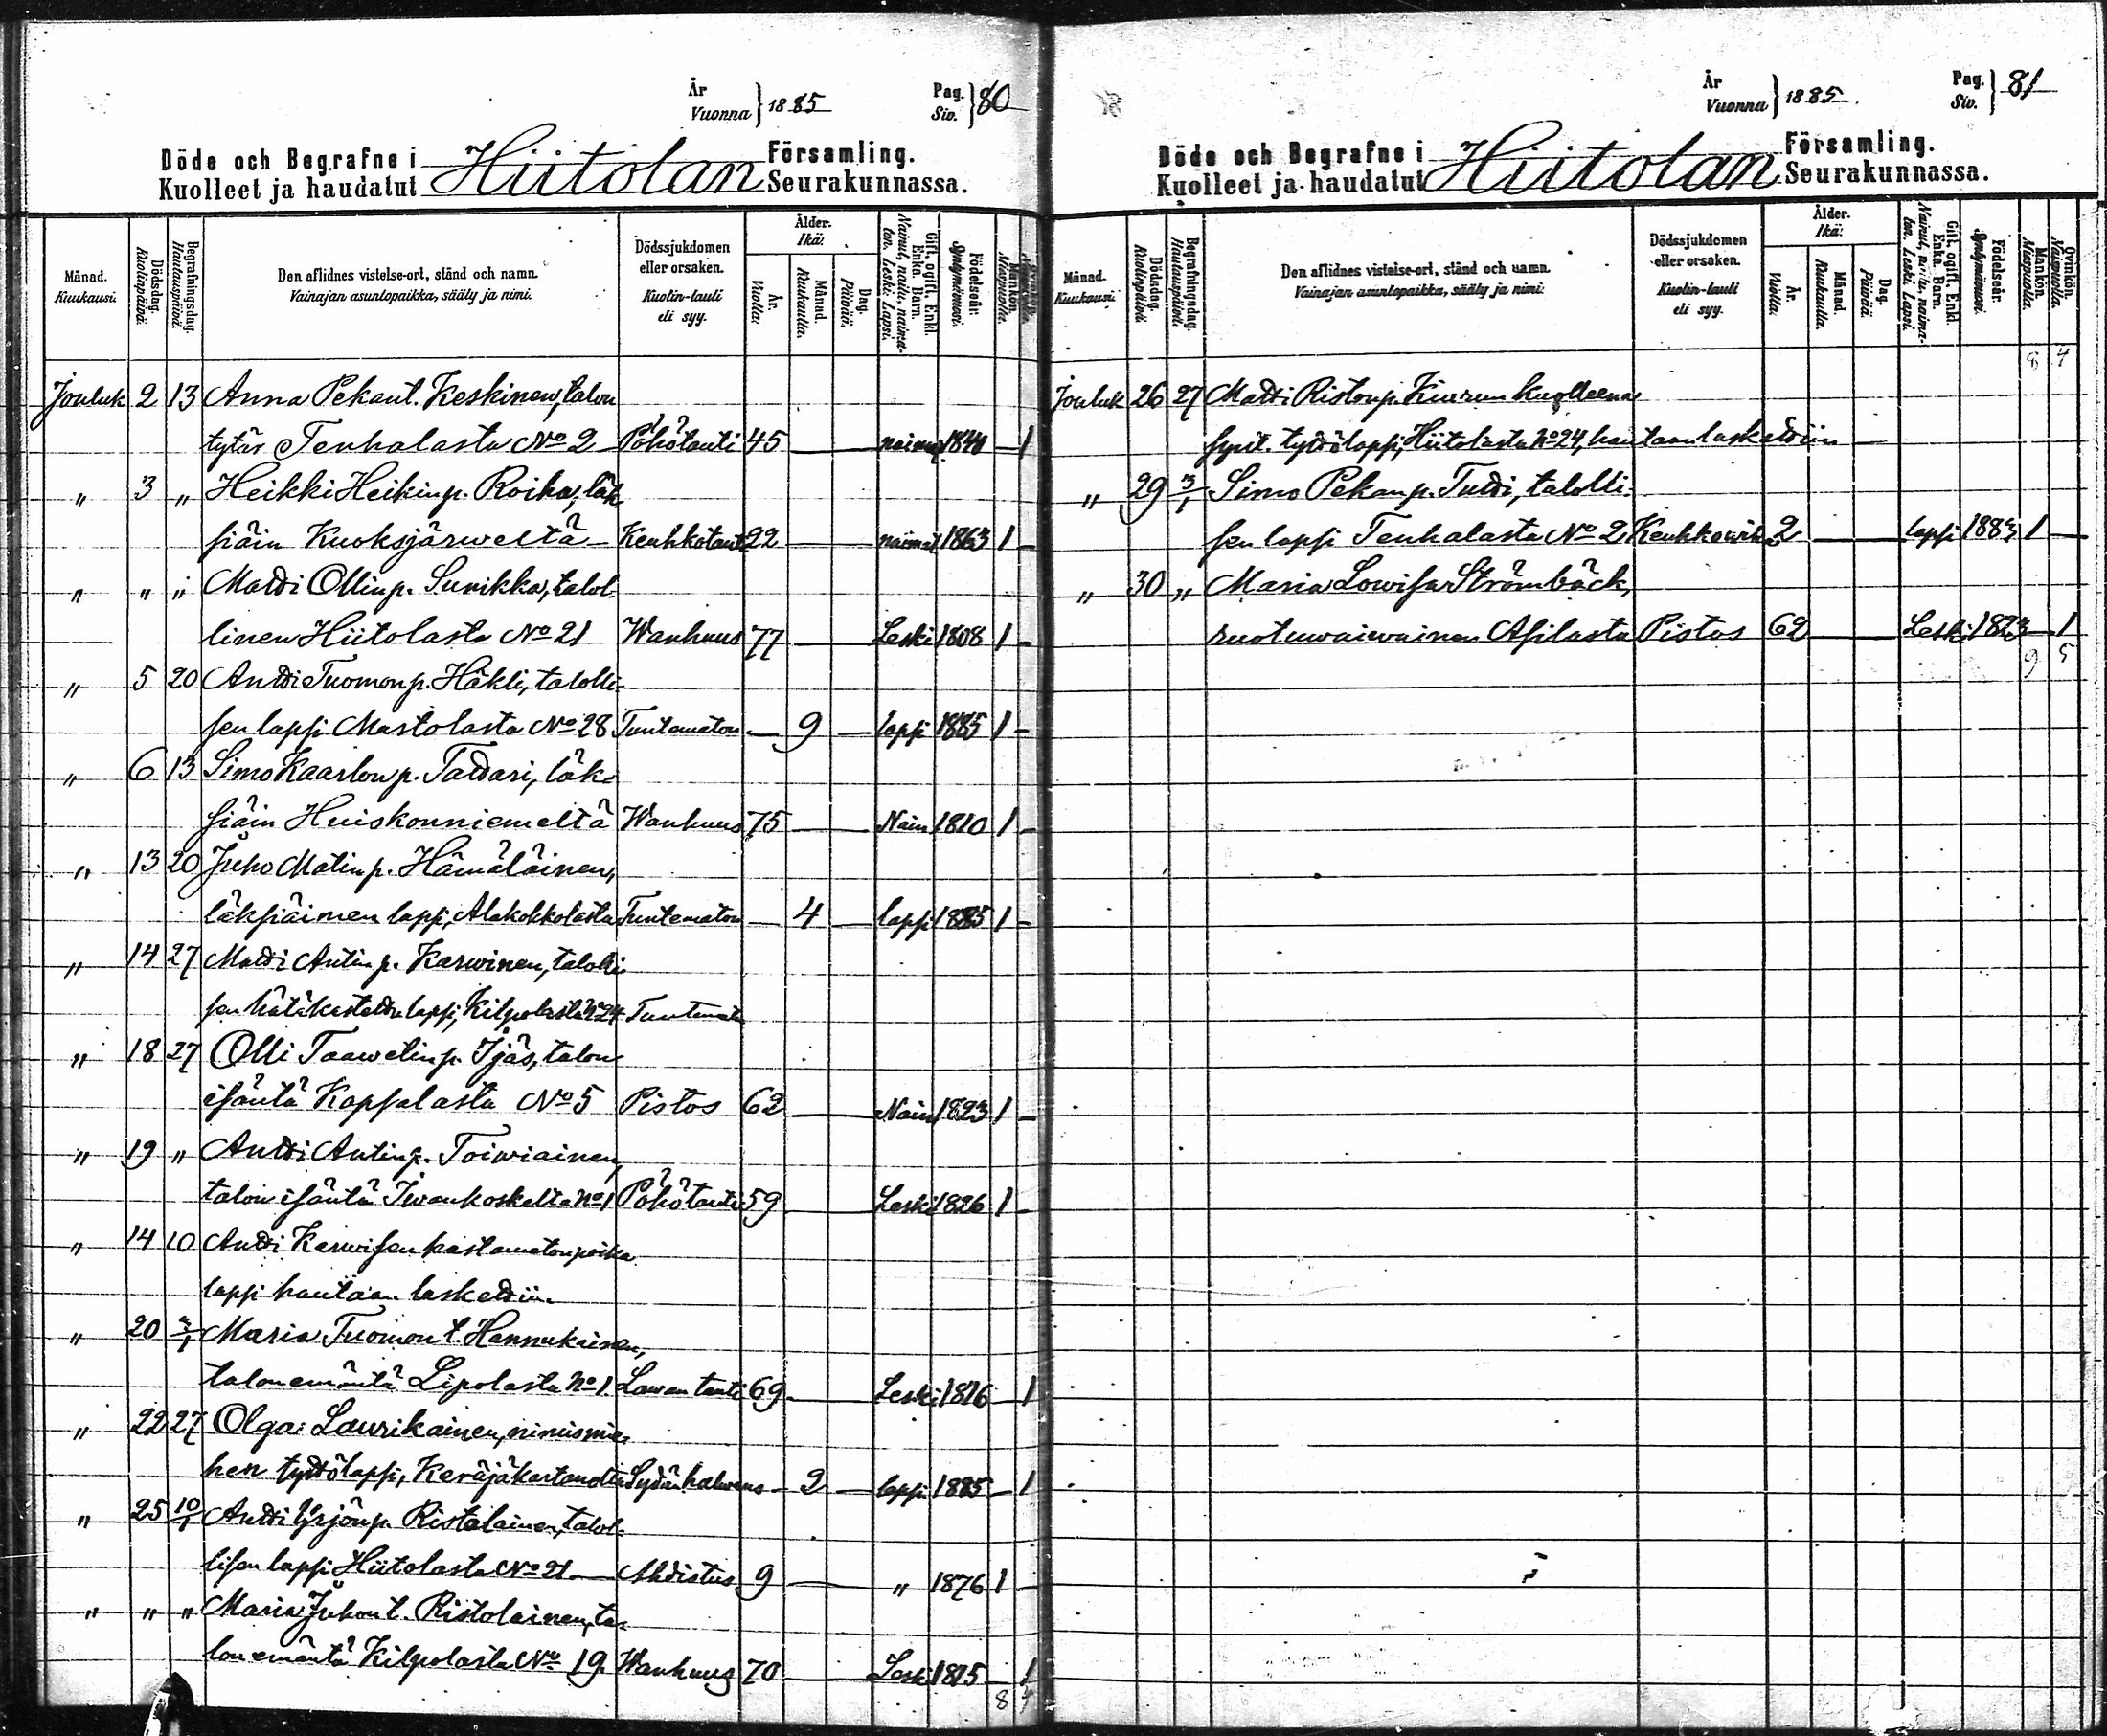 År
Vuonna } 1885
Pag.
Siv. } 80
Döde och Begrafne i Hiitolan Församling.
Kuolleet ja haudatut Seurakunnassa.
Månad.
Kuukausi.
Dödsdag.
Kuolinpäivä.
Begrafningsdag.
Hautauspäivä.
Den aflidnes vistelse-ort, stånd och namn.
Vainajan asuntopaikka, sääty ja nimi.
Dödssjukdomen
eller orsaken.
Kuolin-tauti
eli syy.
Ålder.
Ikä:
År.
Vuotta:
Månad.
Kuukautta.
Dag.
Päivää.
Gift, ogift, Enkl.
Enka. Barn.
Nainut, naitu, naima-
ton. Leski. Lapsi.
Födelseår.
Syntymävuosi.
Mankön.
Miespuolta.
Jouluk 2 13 Anna Pekant. Keskinen, talon
tytär Tenhalasta No 2 Pöhötauti 45 — 1840 — 1
" 3 " Heikki Heikinp. Roiha, läk
siäin Kuoksjärweltä Keuhkotauti 22 — 1863 1 —
" " " Matti Ollinp. Sunikka, talol-
linen Hiitolasta No 21 Wanhuus 77 — Leski 1808 1 —
" 5 20 Antti Tuomonp. Häkli, talolli-
sen lapsi Mustolasta No 28 Tuntematon — 9 — lapsi 1885 1 —
" 6 13 Simo Kaarlonp. Tattari, läk-
siäin Huiskonniemeltä Wanhuus 75 — Nain 1810 1 —
" 13 20 Juho Matinp. Hämäläinen,
läksiäimen lapsi, Alakokkolasta Tuntematon — 4 — lapsi 1885 1 —
" 14 27 Matti Antinp. Karwinen, talolli
sen hätäkastettu lapsi, Kilpolasta No 24 Tuntemat
" 18 27 Olli Taawetinp. Ijäs, talon
isäntä Kopsalasta No 5 Pistos 62 — Nain 1823 1 —
" 19 " Antti Antinp. Toiwiainen,
talon isäntä Iwankoskelta No 1 Pöhötauti 59 Leski 1826 1 —
" 14 10 Antti Karwisen kastamaton poika
lapsi hautaan laskettiin.
" 20 3/1 Maria Tuomont. Hannukainen,
talon emäntä Lipolasta No 1. Lawantauti 69 — Leski 1816 — 1
" 22 27 Olga Laurikainen, nimismie-
hen tyttölapsi, Sydänhalwaus — 2 — lapsi 1885 — 1
" 25 10/1 Antti Yrjönp. Ristolainen, talol-
lisen lapsi Hiitolasta No 21 — Ahdistus 9 — " 1876 1 —
" " " Maria Juhont. Ristolainen, ta-
lon emäntä Kilpolasta No 19. Wanhuus 70 Leski 1815 — 1
8 4
År
Vuonna } 1885.
Pag.
Siv. } 81
Döde och Begrafne i Hiitolan Församling.
Kuolleet ja haudatut Seurakunnassa.
Månad.
Kuukausi.
Dödsdag.
Kuolinpäivä.
Begrafningsdag.
Hautauspäivä.
Den aflidnes vistelse-ort, stånd och namn.
Vainajan asuntopaikka, sääty ja nimi.
Dödssjukdomen
eller orsaken.
Kuolin-tauti
eli syy.
Ålder.
Ikä:
År.
Vuotta:
Månad.
Kuukautta.
Dag.
Päivää.
Gift, ogift, Enkl.
Enka. Barn.
Nainut, naitu, naima-
ton. Leski. Lapsi.
Födelseår.
Syntymävuosi.
Mankön.
Miespuolta.
Qvinkön.
Naispuolta.
8 4
Jouluk 26 27 Matti Ristonp. Kiurun kuolleena
synt. tyttölapsi, Hiitolasta No 24, hautaan laskettiin —
" 29 3/1 Simo Pekanp. Tutti, talolli-
sen lapsi Tenhalasta No 2 2 — lapsi 1883 1 —
" 30 " Maria Lowisa Strömbäck,
ruotuwaiwainen Asilasta Pistos 62 — Leski 1823 — 1
9 5